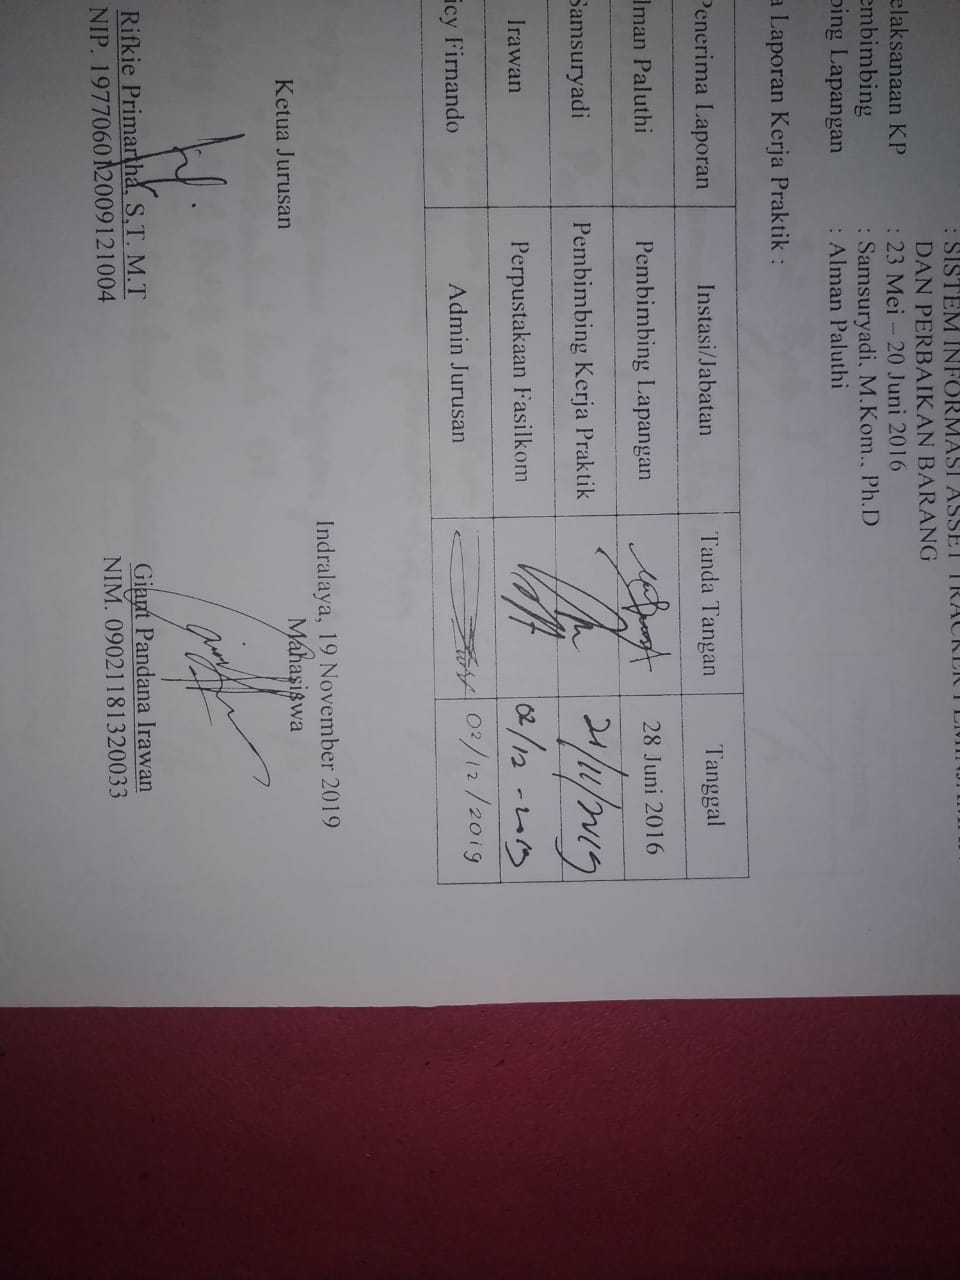 : SISTEM INFORMASI ASSET TRACKER PEMINJAMAN
DAN PERBAIKAN BARANG
elaksanaan KP : 23 Mei – 20 Juni 2016
embimbing : Samsuryadi, M.Kom., Ph.D
bing Lapangan : Alman Paluthi
a Laporan Kerja Praktik :
Penerima Laporan Instasi/Jabatan Tanda Tangan Tanggal
lman Paluthi Pembimbing Lapangan 28 Juni 2016
Samsuryadi Pembimbing Kerja Praktik 21/11/2019
Irawan Perpustakaan Fasilkom 02/12 - 2019
icy Firnando Admin Jurusan 02/12/2019
Indralaya, 19 November 2019
Mahasiswa
Ketua Jurusan
Giant Pandana Irawan
NIM. 09021181320033
Rifkie Primartha, S,T. M.T
NIP. 197706012009121004